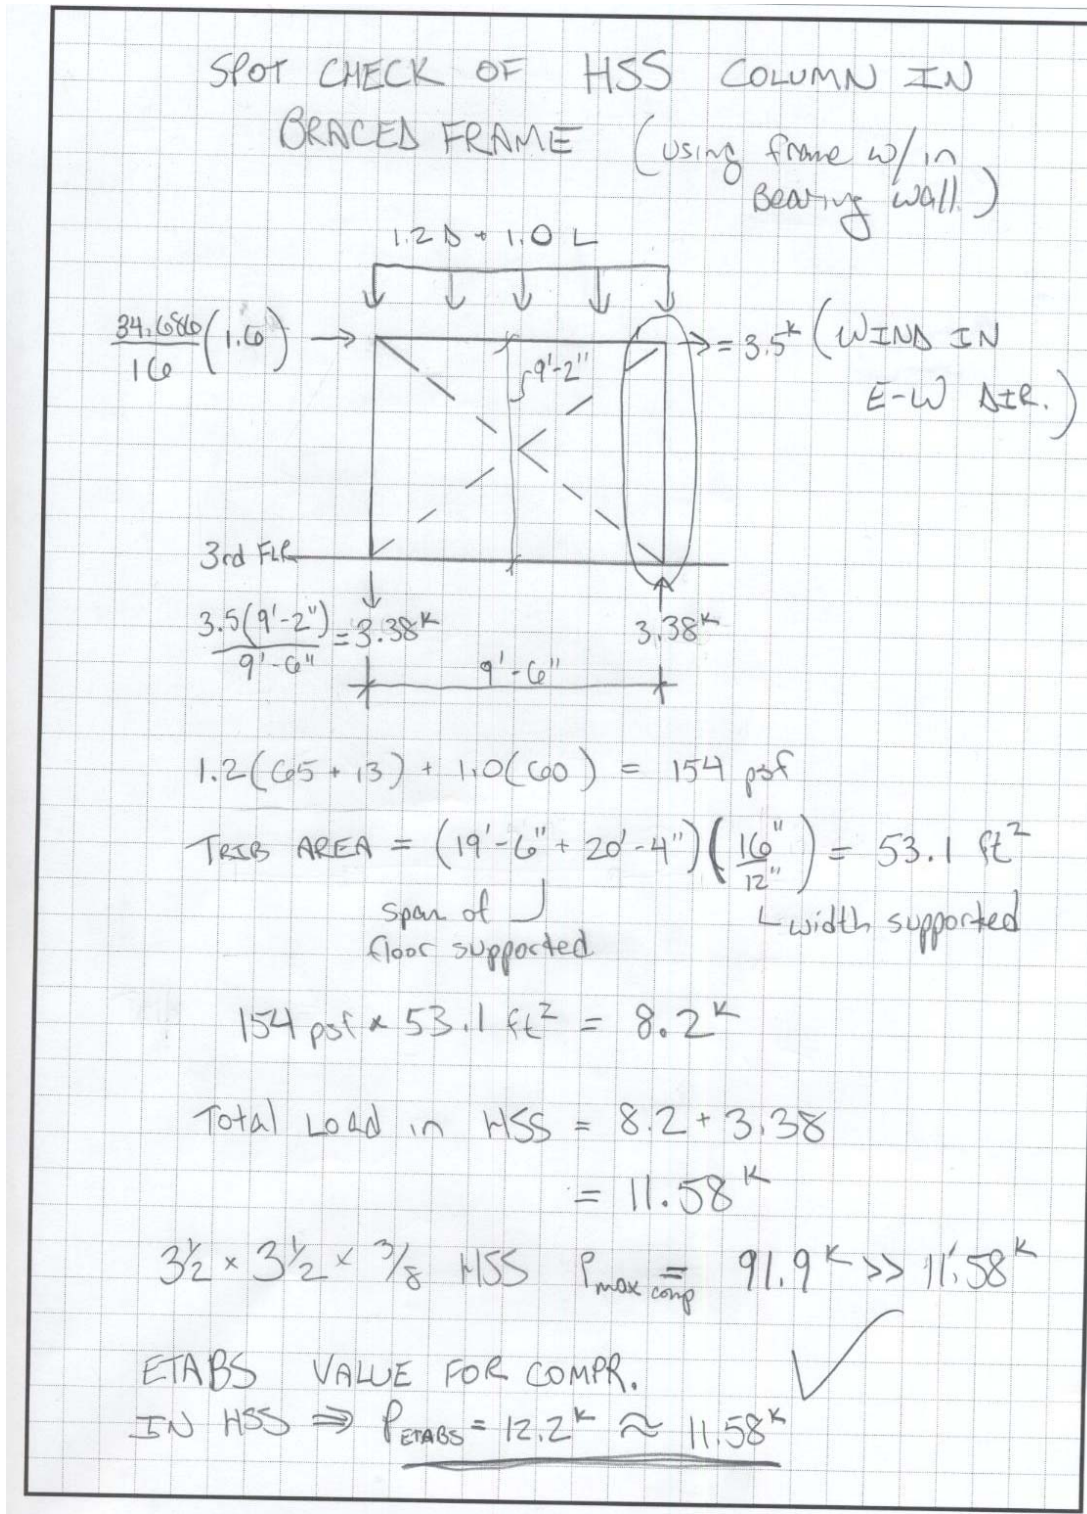 SPOT CHECK OF HSS COLUMN IN
BRACED FRAME (using frame w/in
Bearing wall.)
1.2 D + 1.0 L
34.686/16 (1.6) → → = 3.5ᵏ (WIND IN
E-W DIR.)
9'-2"
3rd FLR
3.5(9'-2")/9'-6" = 3.38ᵏ
3.38ᵏ
9'-6"
1.2(65 + 13) + 1.0(60) = 154 psf
TRIB AREA = (19'-6" + 20'-4")(16"/12") = 53.1 ft²
span of
floor supported
width supported
154 psf × 53.1 ft² = 8.2ᵏ
Total Load in HSS = 8.2 + 3.38
= 11.58ᵏ
3½ × 3½ × 3/8 HSS Pmax comp = 91.9ᵏ >> 11.58ᵏ
ETABS VALUE FOR COMPR.
IN HSS ⇒ PETABS = 12.2ᵏ ≈ 11.58ᵏ